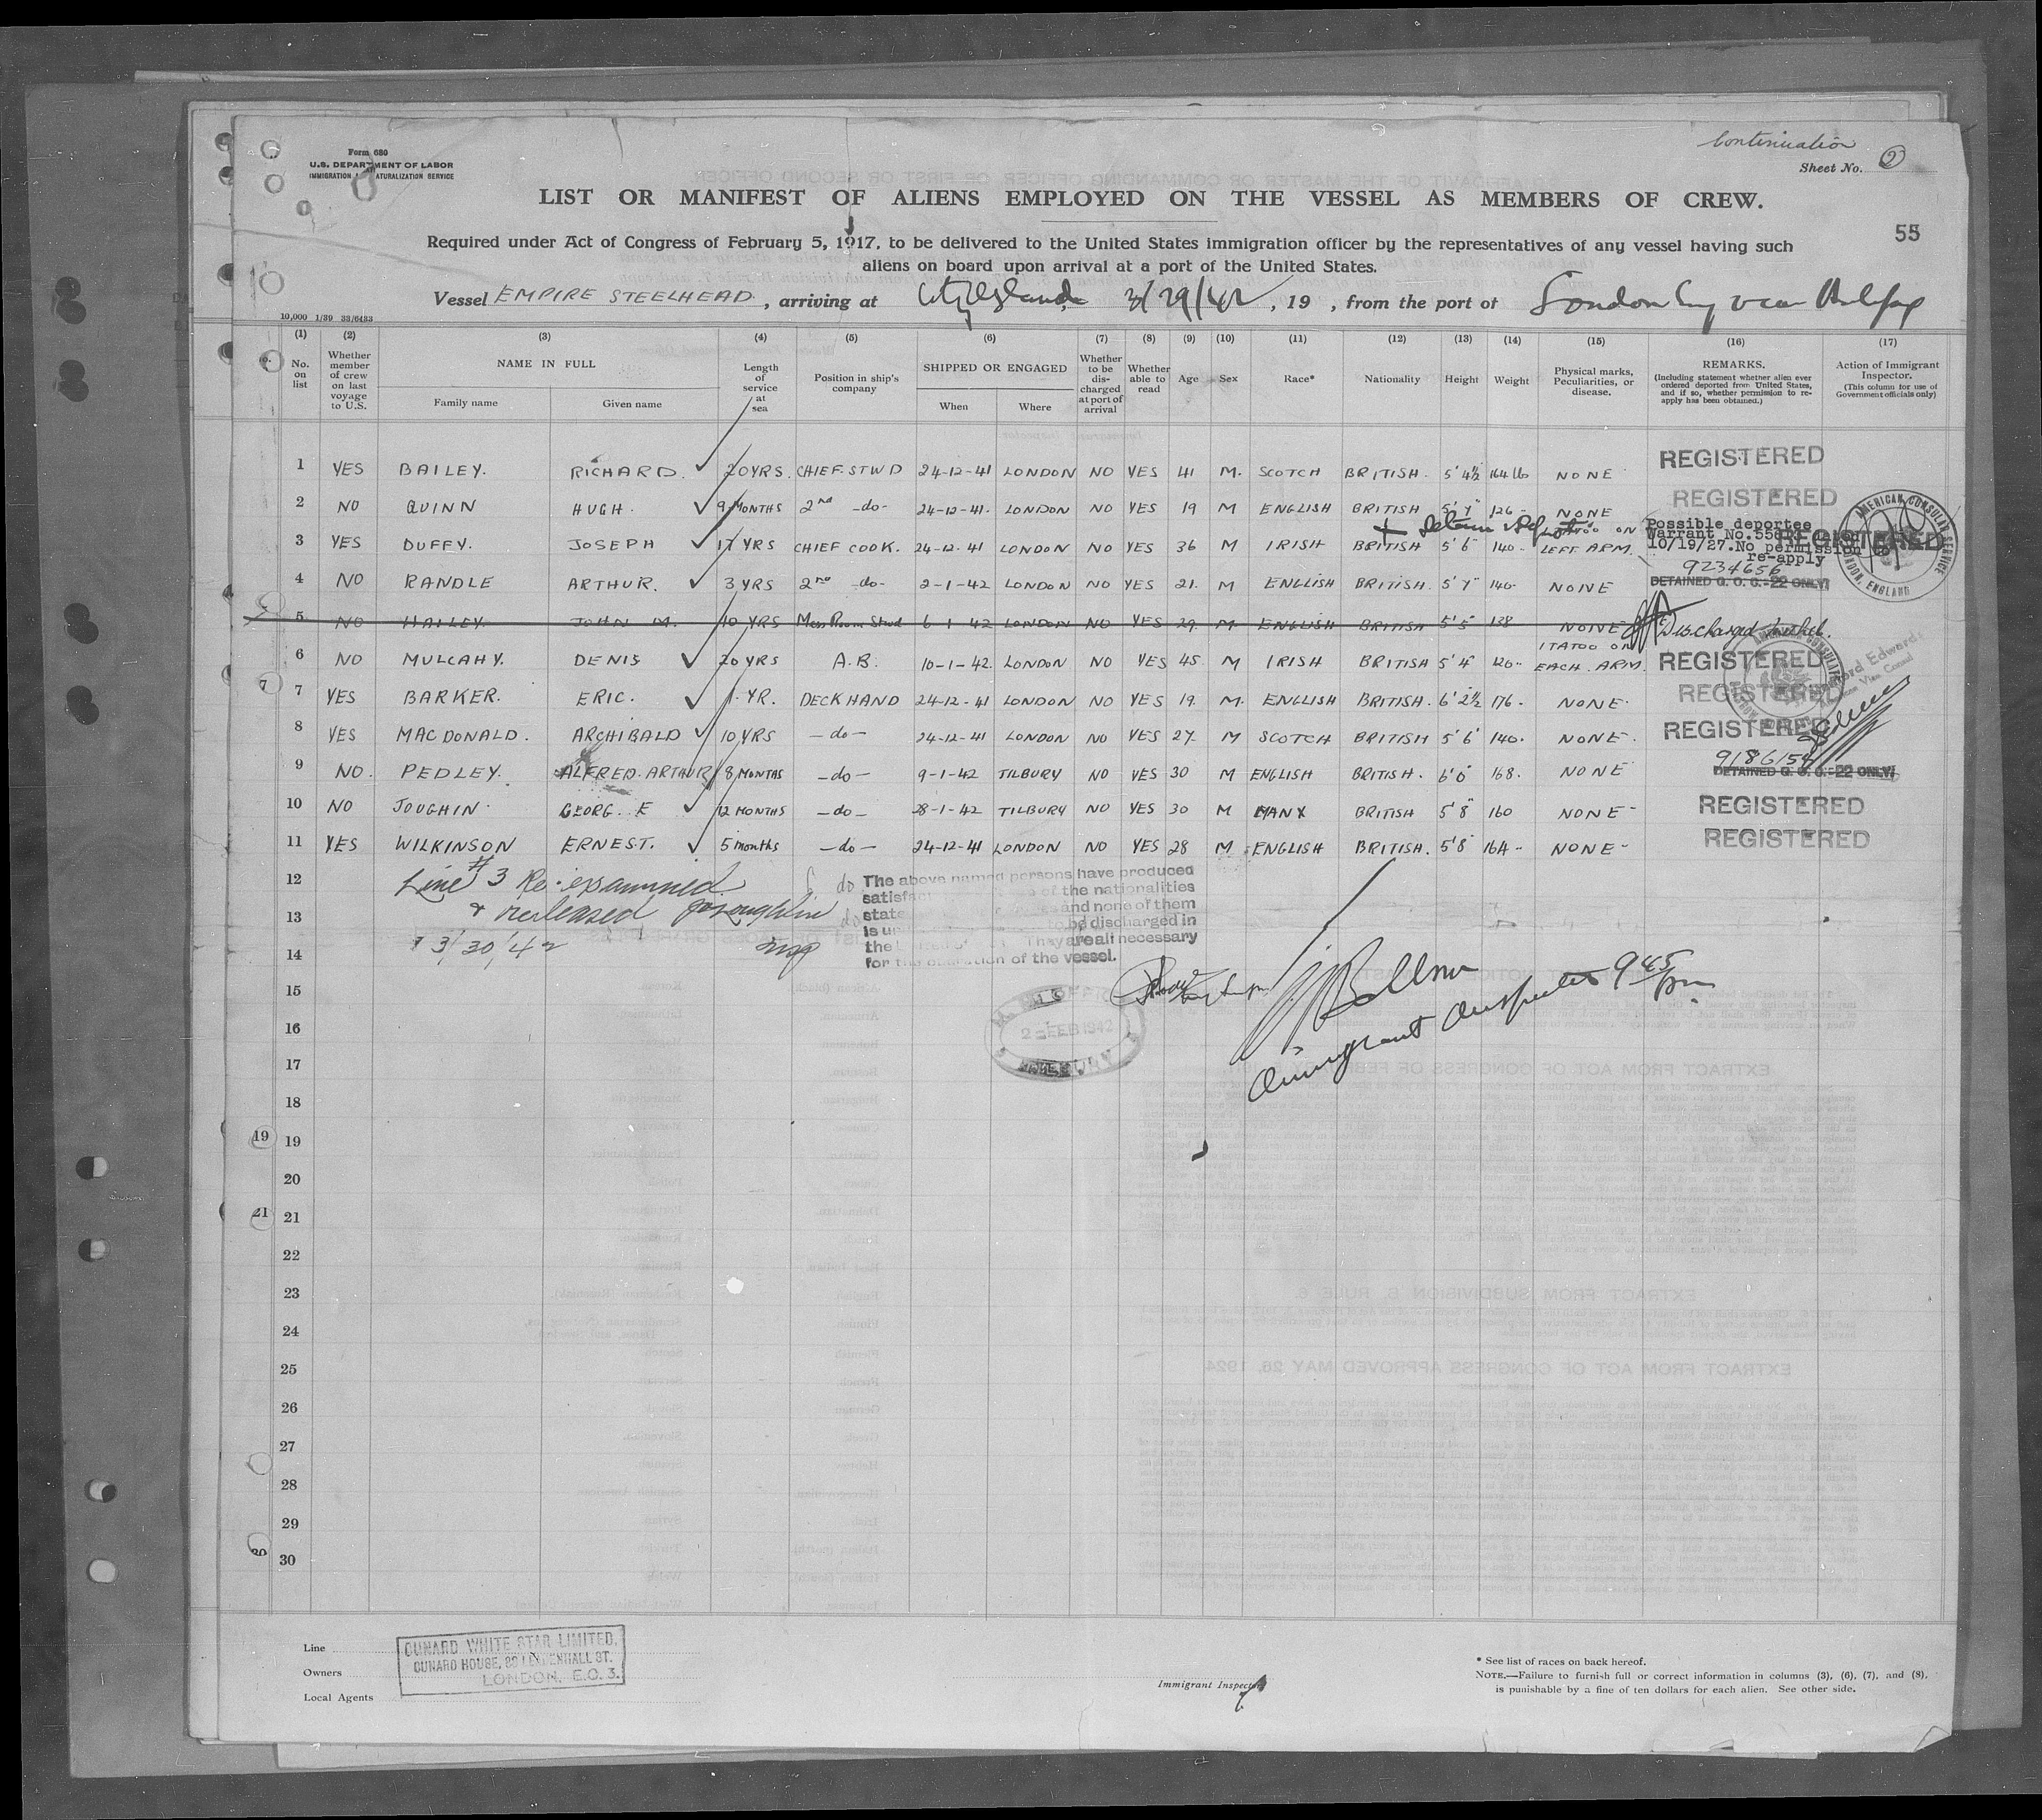 Continuation
Form 680
U.S. DEPARTMENT OF LABOR
IMMIGRATION NATURALIZATION SERVICE
Sheet No. 2
LIST OR MANIFEST OF ALIENS EMPLOYED ON THE VESSEL AS MEMBERS OF CREW.
55
Required under Act of Congress of February 5, 1917, to be delivered to the United States immigration officer by the representatives of any vessel having such
aliens on board upon arrival at a port of the United States.
Vessel EMPIRE STEELHEAD, arriving at City Island, 3/29/42, 19 , from the port of London Eng via Halifax
10,000 1/39 33/6433
(1) (2) (3) (4) (5) (6) (7) (8) (9) (10) (11) (12) (13) (14) (15) (16) (17)
No. on list
Whether member of crew on last voyage to U.S.
NAME IN FULL
Family name
Given name
Length of service at sea
Position in ship's company
SHIPPED OR ENGAGED
When
Where
Whether to be discharged at port of arrival
Whether able to read
Age
Sex
Race*
Nationality
Height
Weight
Physical marks, Peculiarities, or disease.
REMARKS.
(Including statement whether alien ever ordered deported from United States, and if so, whether permission to re-apply has been obtained.)
Action of Immigrant Inspector.
(This column for use of Government officials only)
1 YES BAILEY. RICHARD. 20 YRS. CHIEF. STWD 24-12-41 LONDON NO YES 41 M. SCOTCH BRITISH. 5' 4½ 164 lb NONE REGISTERED
2 NO QUINN HUGH. 9 MONTHS 2nd -do- 24-12-41. LONDON NO YES 19 M ENGLISH BRITISH 5' 7" 126- NONE REGISTERED
3 YES DUFFY. JOSEPH 17 YRS CHIEF COOK. 24-12-41 LONDON NO YES 36 M IRISH BRITISH 5' 6" 140- TATOO ON LEFT ARM. REGISTERED
Possible deportee
Warrant No.
10/19/27. No permission to
re-apply
4 NO RANDLE ARTHUR. 3 YRS 2nd -do- 2-1-42 LONDON NO YES 21. M ENGLISH BRITISH. 5' 7" 140- NONE
9234656
DETAINED G. O. C.-22 ONLY!
5 NO HAILEY. JOHN M. 10 YRS Mess Room Stwd 6-1-42 LONDON NO YES 29. M. ENGLISH BRITISH 5' 5" 138 NONE Discharged
6 NO MULCAHY. DENIS 20 YRS A.B. 10-1-42. LONDON NO YES 45 M IRISH BRITISH 5' 4" 120- 1 TATOO ON EACH. ARM. REGISTERED
7 7 YES BARKER. ERIC. 1. YR. DECK HAND 24-12-41 LONDON NO YES 19. M. ENGLISH BRITISH. 6' 2½ 176- NONE. REGISTERED
8 YES MACDONALD. ARCHIBALD 10 YRS -do- 24-12-41 LONDON NO YES 27- M SCOTCH BRITISH 5' 6" 140- NONE. REGISTERED
9 NO. PEDLEY. ALFRED. ARTHUR 8 MONTHS -do- 9-1-42 TILBURY NO YES 30 M ENGLISH BRITISH. 6' 0" 168. NONE
DETAINED G. O. C.-22 ONLY!
10 NO JOUGHIN GEORG. E 12 MONTHS -do- 28-1-42 TILBURY NO YES 30 M MANX BRITISH 5' 8" 160 NONE- REGISTERED
11 YES WILKINSON ERNEST. 5 months -do- 24-12-41 LONDON NO YES 28 M ENGLISH BRITISH. 5' 8" 164- NONE- REGISTERED
AMERICAN CONSULAR SERVICE
LONDON, ENGLAND
12
Line #3 Re-examined
13
& released
14
3/30/42
The above named persons have produced
of the nationalities
and none of them
to be discharged in
They are all necessary
for the operation of the vessel.
15
Immigrant Inspector 9 45 pm
16
2 FEB 1942
17
18
19 19
20
21 21
22
23
24
25
26
27
28
29
30 30
Line
Owners
Local Agents
CUNARD WHITE STAR LIMITED.
CUNARD HOUSE, 88 LEADENHALL ST.
LONDON, E.C. 3.
Immigrant Inspector
* See list of races on back hereof.
NOTE.—Failure to furnish full or correct information in columns (3), (6), (7), and (8),
is punishable by a fine of ten dollars for each alien. See other side.